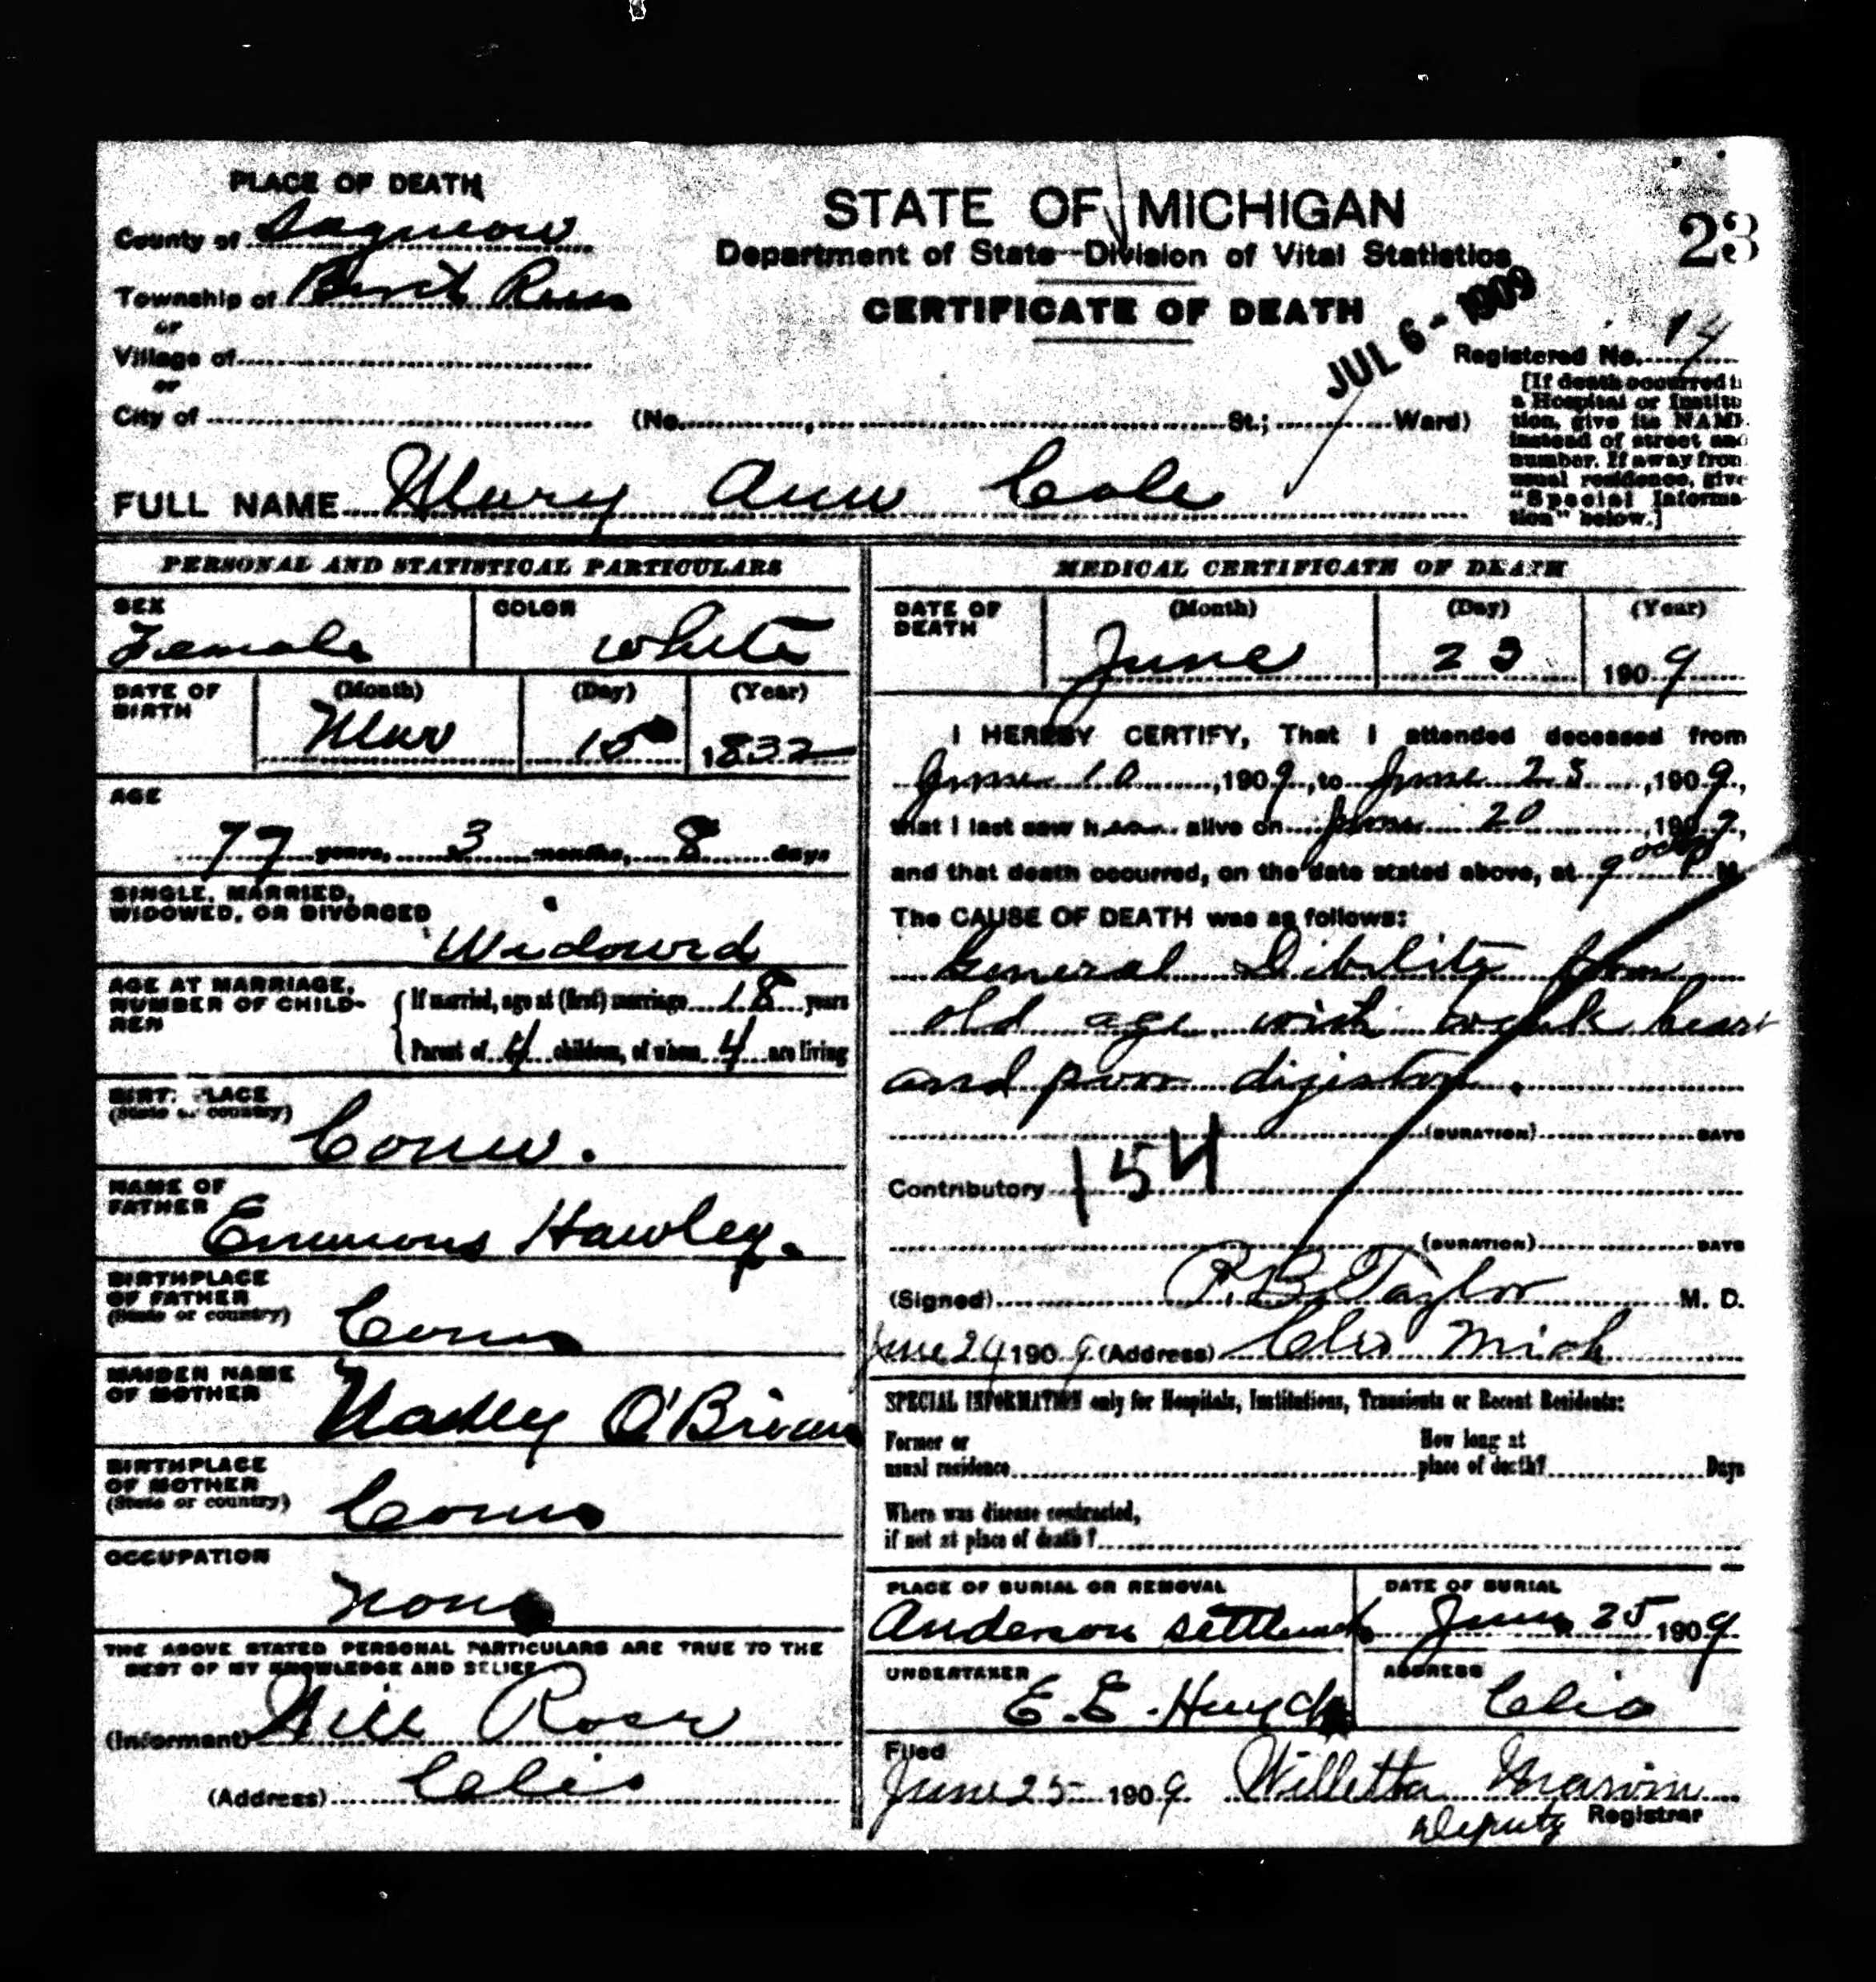 PLACE OF DEATH
County of Saginaw
Township of Birch Run
or
Village of
or
City of
STATE OF MICHIGAN
Department of State—Division of Vital Statistics
CERTIFICATE OF DEATH
JUL 6 - 1909
23
Registered No. 14
(No. , St.; Ward)
[If death occurred in
a Hospital or Institu
tion, give its NAME
instead of street and
number. If away from
usual residence, give
"Special Informa-
tion" below.]
FULL NAME Mary Ann Cole
PERSONAL AND STATISTICAL PARTICULARS
SEX
Female
COLOR
White
DATE OF
BIRTH
(Month) (Day) (Year)
Mar 15 1832
AGE
77 years, 3 months, 8 days
SINGLE, MARRIED,
WIDOWED, OR DIVORCED
Widowed
AGE AT MARRIAGE,
NUMBER OF CHILD-
REN
If married, age at (first) marriage 18 years
Parent of 4 children, of whom 4 are living
BIRTHPLACE
(State or country)
Conn.
NAME OF
FATHER
Emmons Hawley.
BIRTHPLACE
OF FATHER
(State or country)
Conn
MAIDEN NAME
OF MOTHER
O'Brien
BIRTHPLACE
OF MOTHER
(State or country)
Conn
OCCUPATION
None
THE ABOVE STATED PERSONAL PARTICULARS ARE TRUE TO THE
BEST OF MY KNOWLEDGE AND BELIEF
(Informant) Will Rosr
(Address) Clio
MEDICAL CERTIFICATE OF DEATH
DATE OF
DEATH
(Month) (Day) (Year)
June 23 1909
I HEREBY CERTIFY, That I attended deceased from
June 10, 1909, to June 23, 1909,
that I last saw her alive on June 20, 1909,
and that death occurred, on the date stated above, at 9 P M.
The CAUSE OF DEATH was as follows:
General Dibility from
old age with weak heart
and poor digistion.
(DURATION) DAYS
Contributory 154
(DURATION) DAYS
(Signed) P. B. Taylor M. D.
June 24 1909 (Address) Clio Mich
SPECIAL INFORMATION only for Hospitals, Institutions, Transients or Recent Residents:
Former or
usual residence
How long at
place of death? Days
Where was disease contracted,
if not at place of death?
PLACE OF BURIAL OR REMOVAL
Anderson settlement
DATE OF BURIAL
June 25 1909
UNDERTAKER
E. E.
ADDRESS
Clio
Filed
June 25 1909 Willetta Marvin
Deputy Registrar